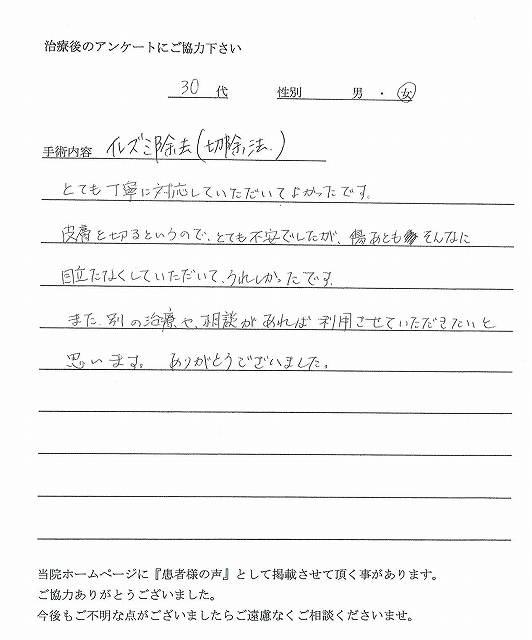 治療後のアンケートにご協力下さい
30 代 性別 男 ・ 女
手術内容 イレズミ除去(切除法)
とても丁寧に対応していただいてよかったです。
皮膚を切るというので、とても不安でしたが、傷あともそんなに
目立たなくしていただいて、うれしかったです。
また、別の治療や、相談があれば利用させていただきたいと
思います。 ありがとうございました。
当院ホームページに『患者様の声』として掲載させて頂く事があります。
ご協力ありがとうございました。
今後もご不明な点がございましたらご遠慮なくご相談くださいませ。